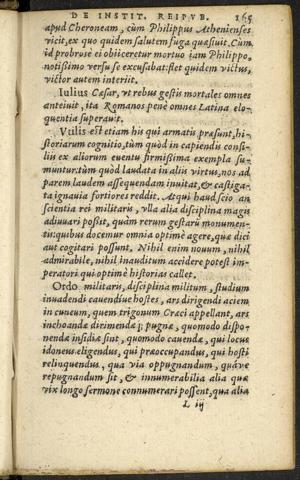 DE INSTIT. REIPVB. 165
apud Cheroneam, cùm Philippus Athenienses
vicit, ex quo quidem salutem fuga quæsiuit. Cum
id probrose ei obiiceretur mortuo iam Philippo,
notissimo versu se excusabat: flet quidem victus,
victor autem interiit.
Iulius Cæsar, vt rebus gestis mortales omnes
anteiuit, ita Romanos penè omnes Latina elo-
quentia superauit.
Vtilis est etiam his qui armatis præsunt, hi-
storiarum cognitio, tùm quòd in capiendis consi-
liis ex aliorum euentu firmissima exempla su-
muntur: tùm quòd laudata in aliis virtus, nos ad
parem laudem assequendam inuitat, & castiga-
ta ignauia fortiores reddit. Atqui haud scio an
scientia rei militaris, vlla alia disciplina magis
adiuuari possit, quàm rerum gestarũ monumen-
tis: quibus docemur omnia optimè agere, quæ dici
aut cogitari possunt. Nihil enim nouum, nihil
admirabile, nihil inauditum accidere potest im-
peratori qui optimè historias callet.
Ordo militaris, disciplina militum, studium
inuadendi cauendíue hostes, ars dirigendi aciem
in cuneum, quem trigonum Græci appellant, ars
inchoandæ dirimendæq; pugnæ, quomodo dispo-
nendæ insidiæ sint, quomodo cauendæ, qui locus
idoneus eligendus, qui præoccupandus, qui hosti
relinquendus, qua via oppugnandum, quáve
repugnandum sit, & innumerabilia alia quæ
vix longo sermone connumerari possent, qua alia
L iij